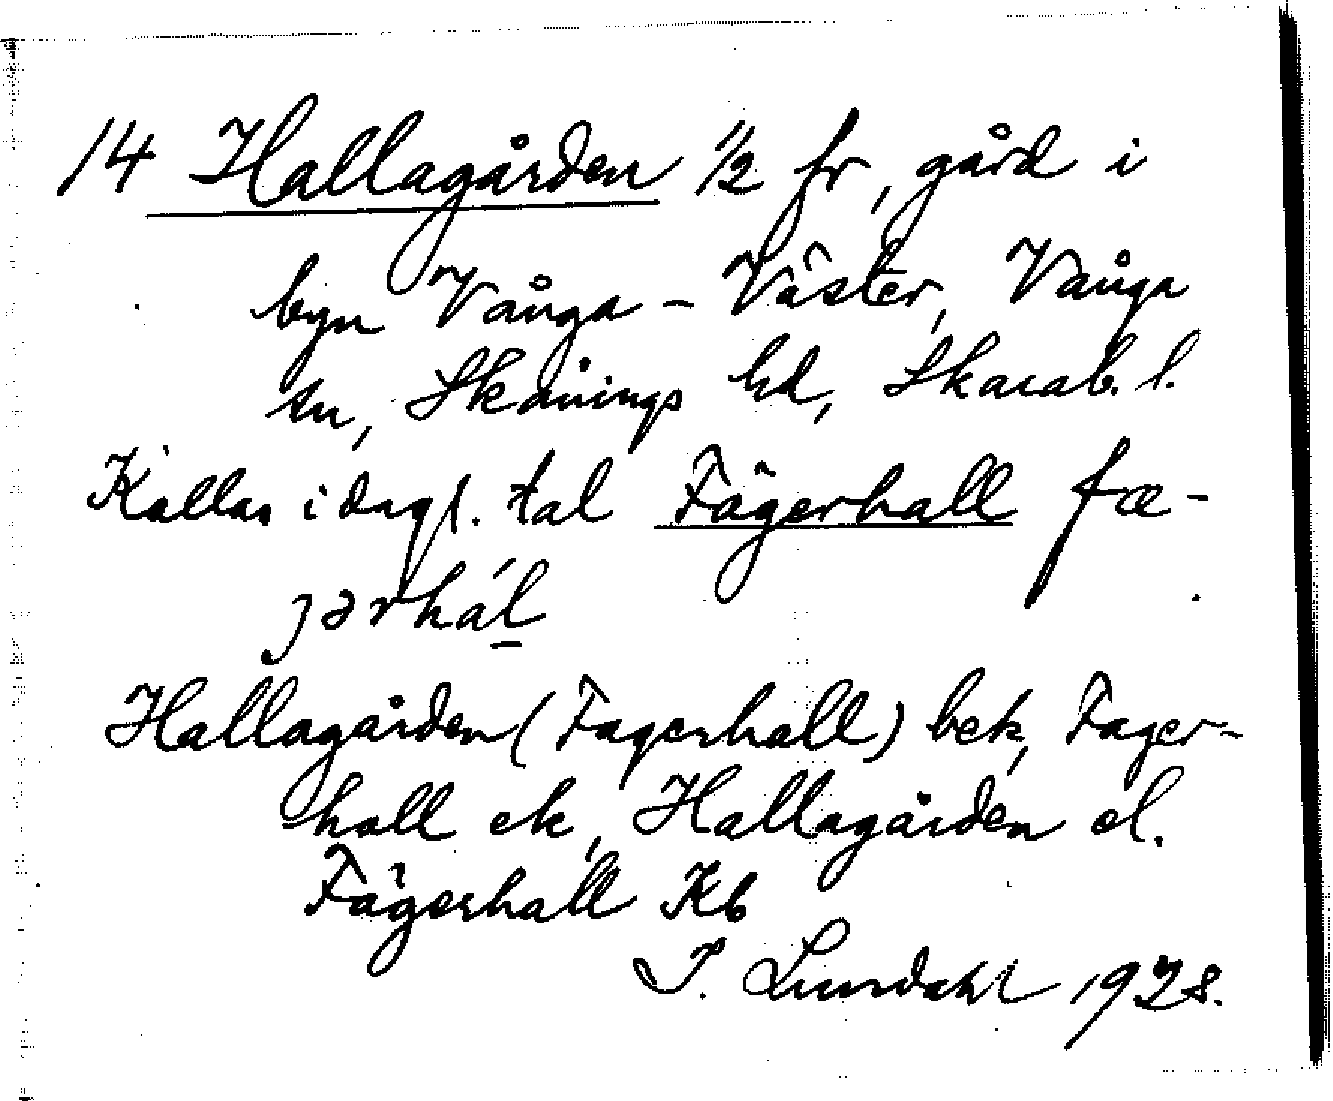 14 Hallagården 1/2 fr, gård i
byn Vånga - Väster, Vånga
sn, Skånings hd, Skarab. l.
Kallas i dagl. tal Fägerhall fæ-
jərhál
Hallagården (Fagerhall) bek, Fager-
hall ek, Hallagården el.
Fägerhall Kb
I. Lundahl 1928.